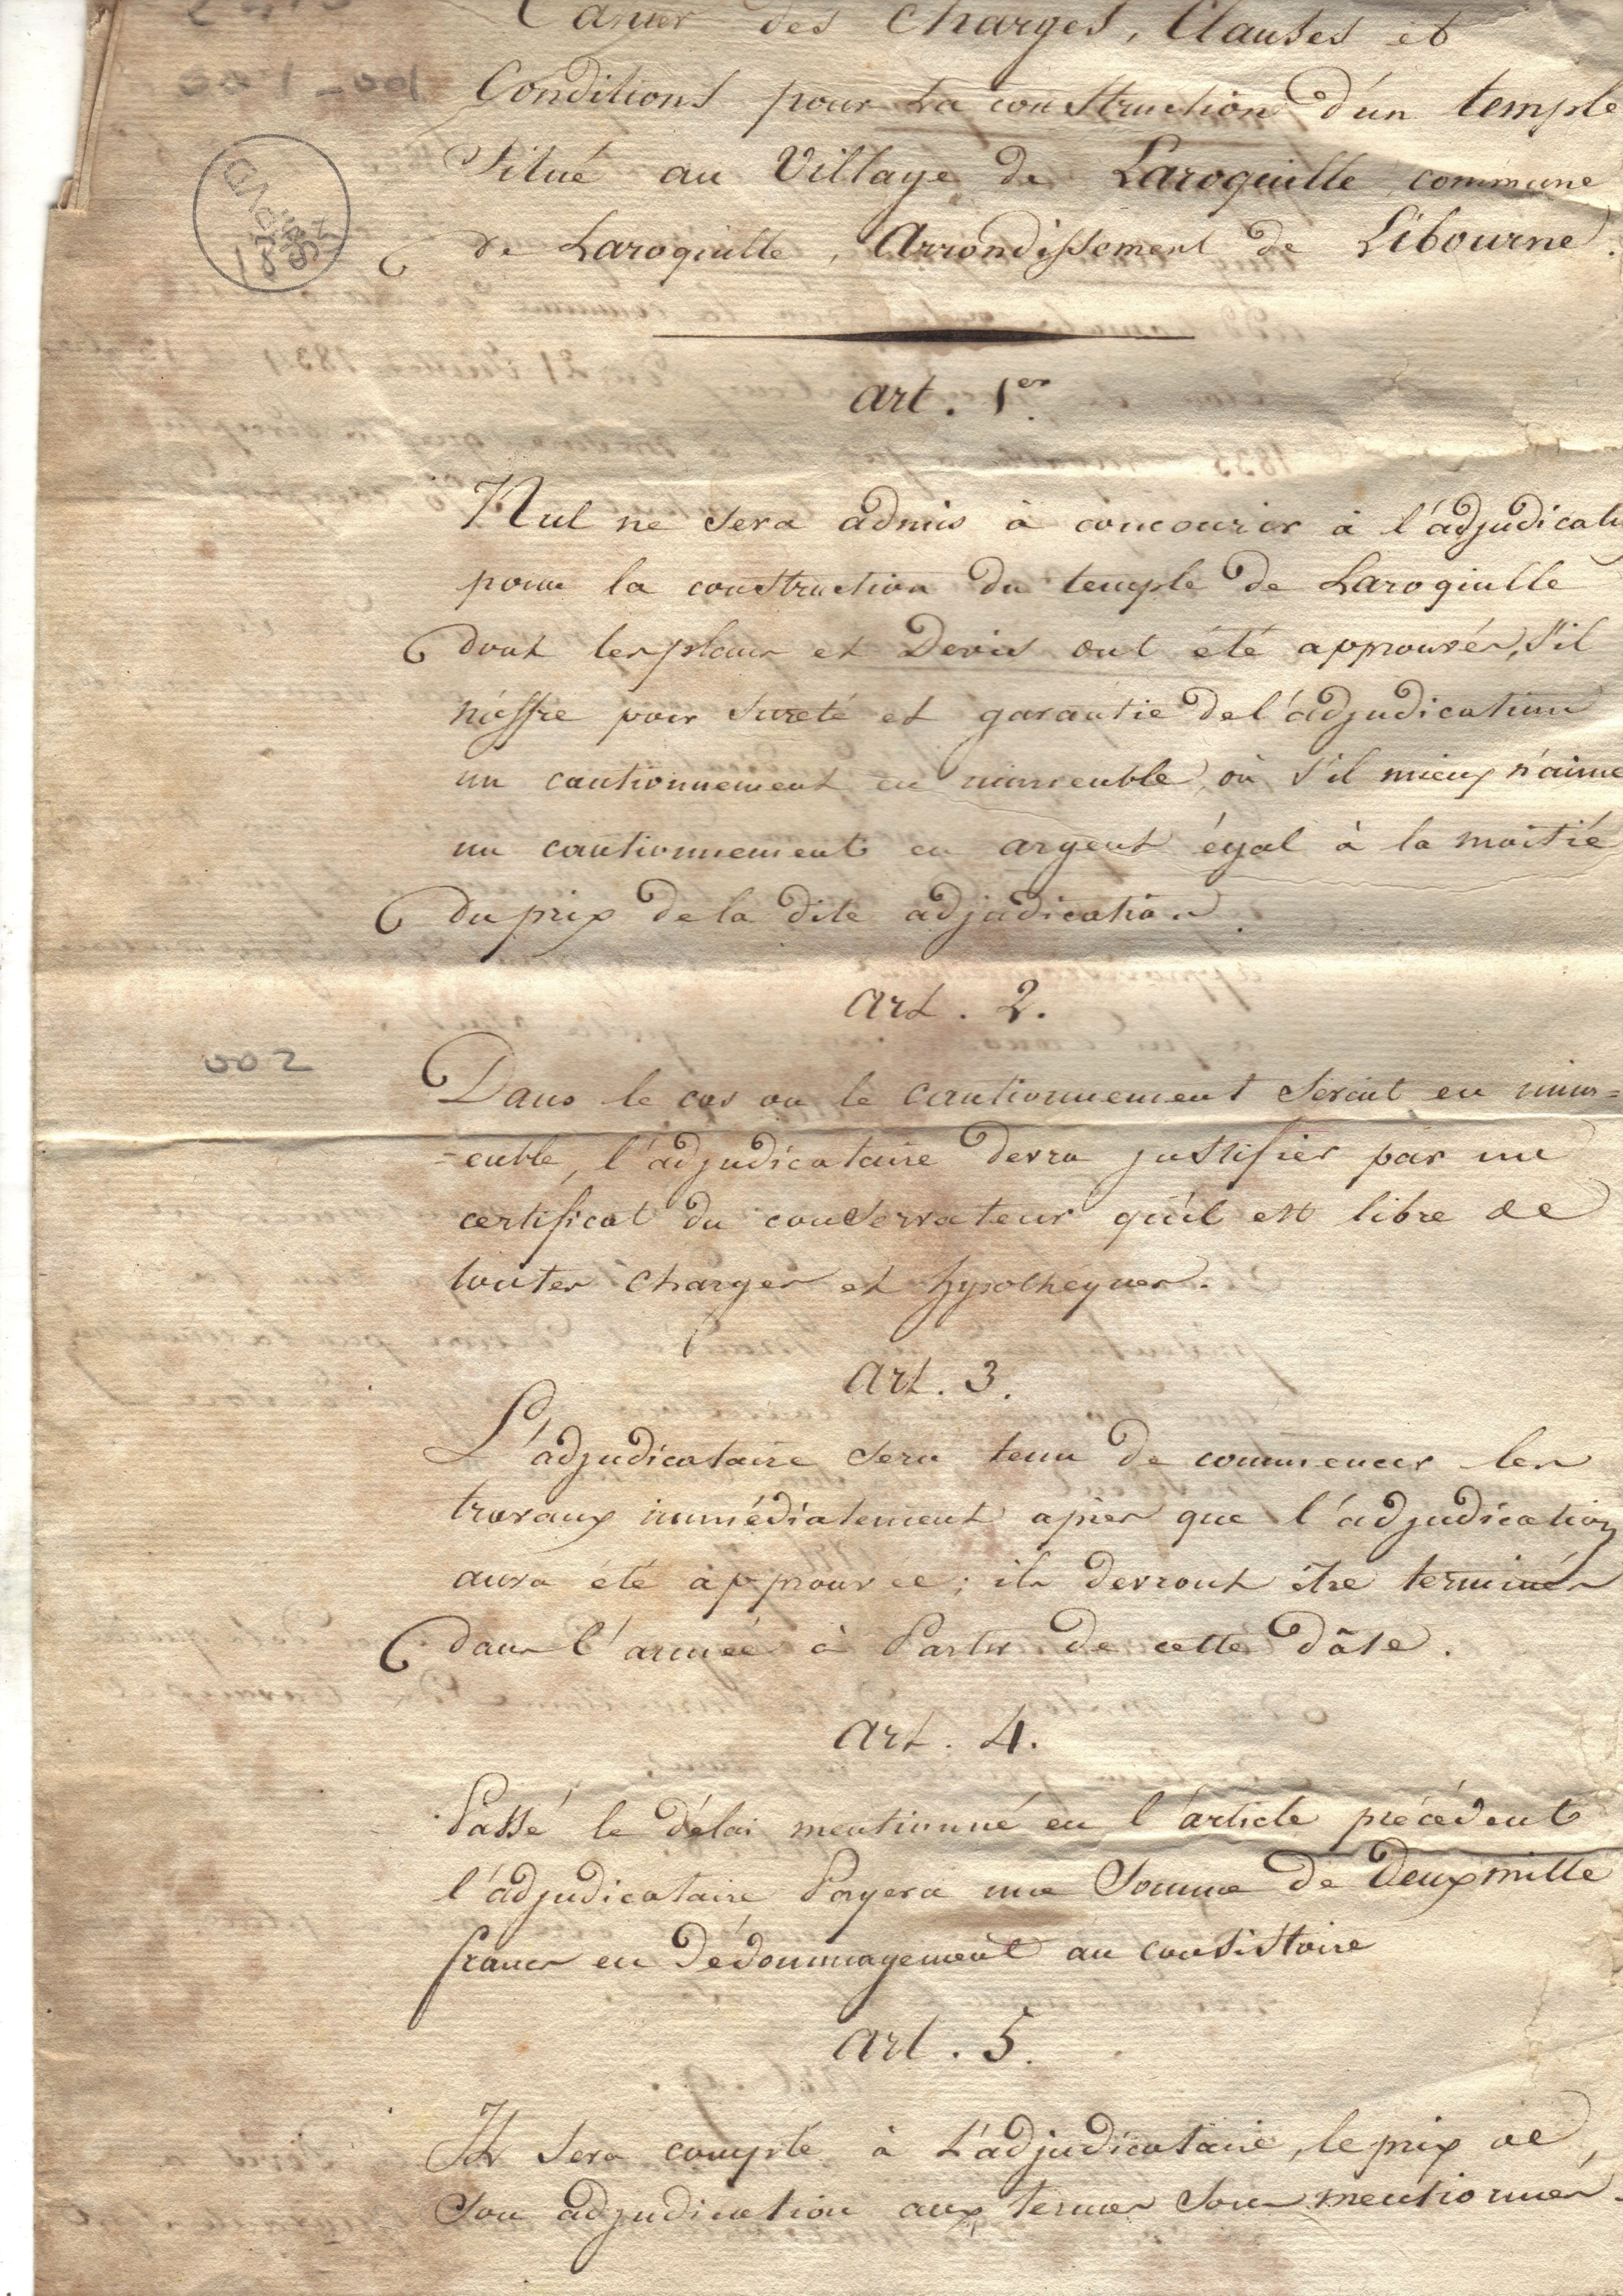 Cahier des Charges, Clauses et
Conditions pour la construction d'un temple
Situé au Village de Laroquille, commune
de Laroquille, Arrondissement de Libourne.
art. 1er
Nul ne sera admis à concourir à l'adjudicati
pour la construction du temple de Laroquille
dont les plans et Devis ont été approuvés, s'il
n'offre pour sureté et garantie de l'adjudication
un cautionnement en immeuble, ou s'il mieux n'aime
un cautionnement en argent égal à la moitié
du prix de la dite adjudication.
art. 2.
002
Dans le cas ou le cautionnement serait en imm=
=euble, l'adjudicataire devra justifier par un
certificat du conservateur qu'il est libre de
toutes charges et hypotheques.
art. 3.
L'adjudicataire sera tenu de commencer les
travaux immédiatement après que l'adjudication
aura été approuvée; ils devront être terminés
dans l'année à Partir de cette dâte.
art. 4.
Passé le délai mentionné en l'article précédent
l'adjudicataire Payera une Somme de Deux mille
francs en Dédommagement au consistoire
art. 5.
Il sera compté à L'adjudicataire, le prix de
son adjudication aux termes sous mentionnés.